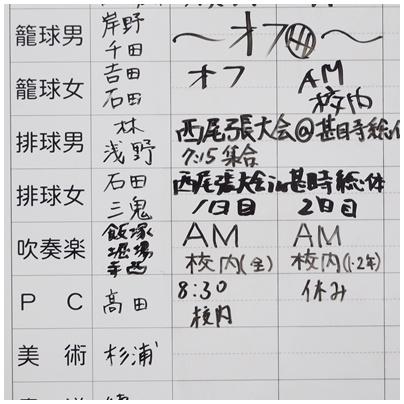 籠球男 岸野 〜オフ〜
千田
籠球女 吉田 オフ AM
石田 校内
排球男 林 西尾張大会@甚目寺総体
浅野 7:15集合
排球女 石田 西尾張大会in甚目寺総体
三鬼 1日目 2日目
吹奏楽 飯塚 AM AM
堀場 校内(全) 校内(1・2年)
寺西
PC 高田 8:30 休み
校内
美術 杉浦